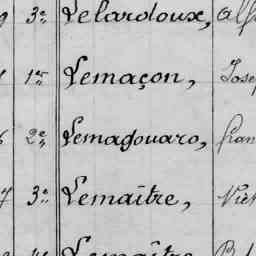 3e Lelardoux,
1er Lemaçon,
2e Lemagouaro,
3e Lemaître, Vict
Lemaître